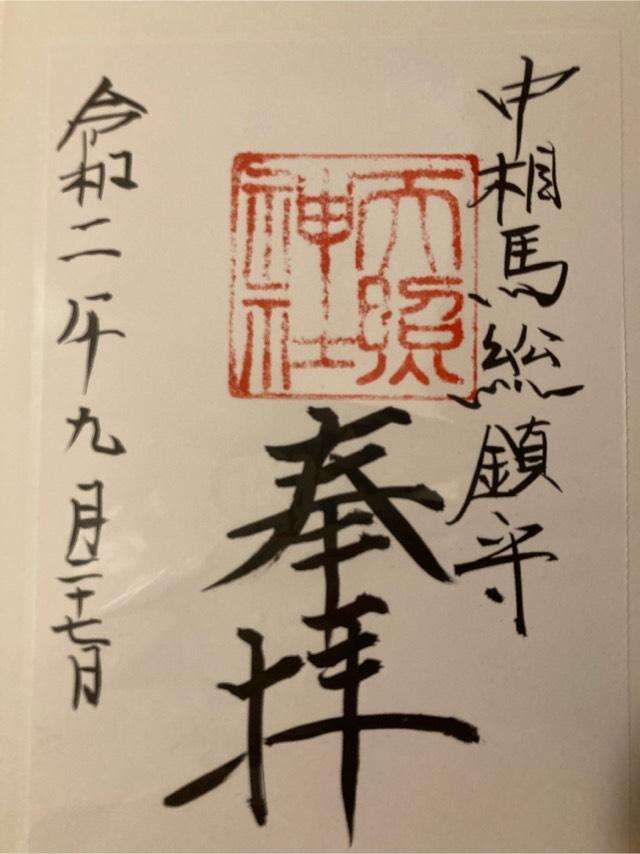 中相馬総鎮守
天照
神社
奉拝
令和二年九月二十七日